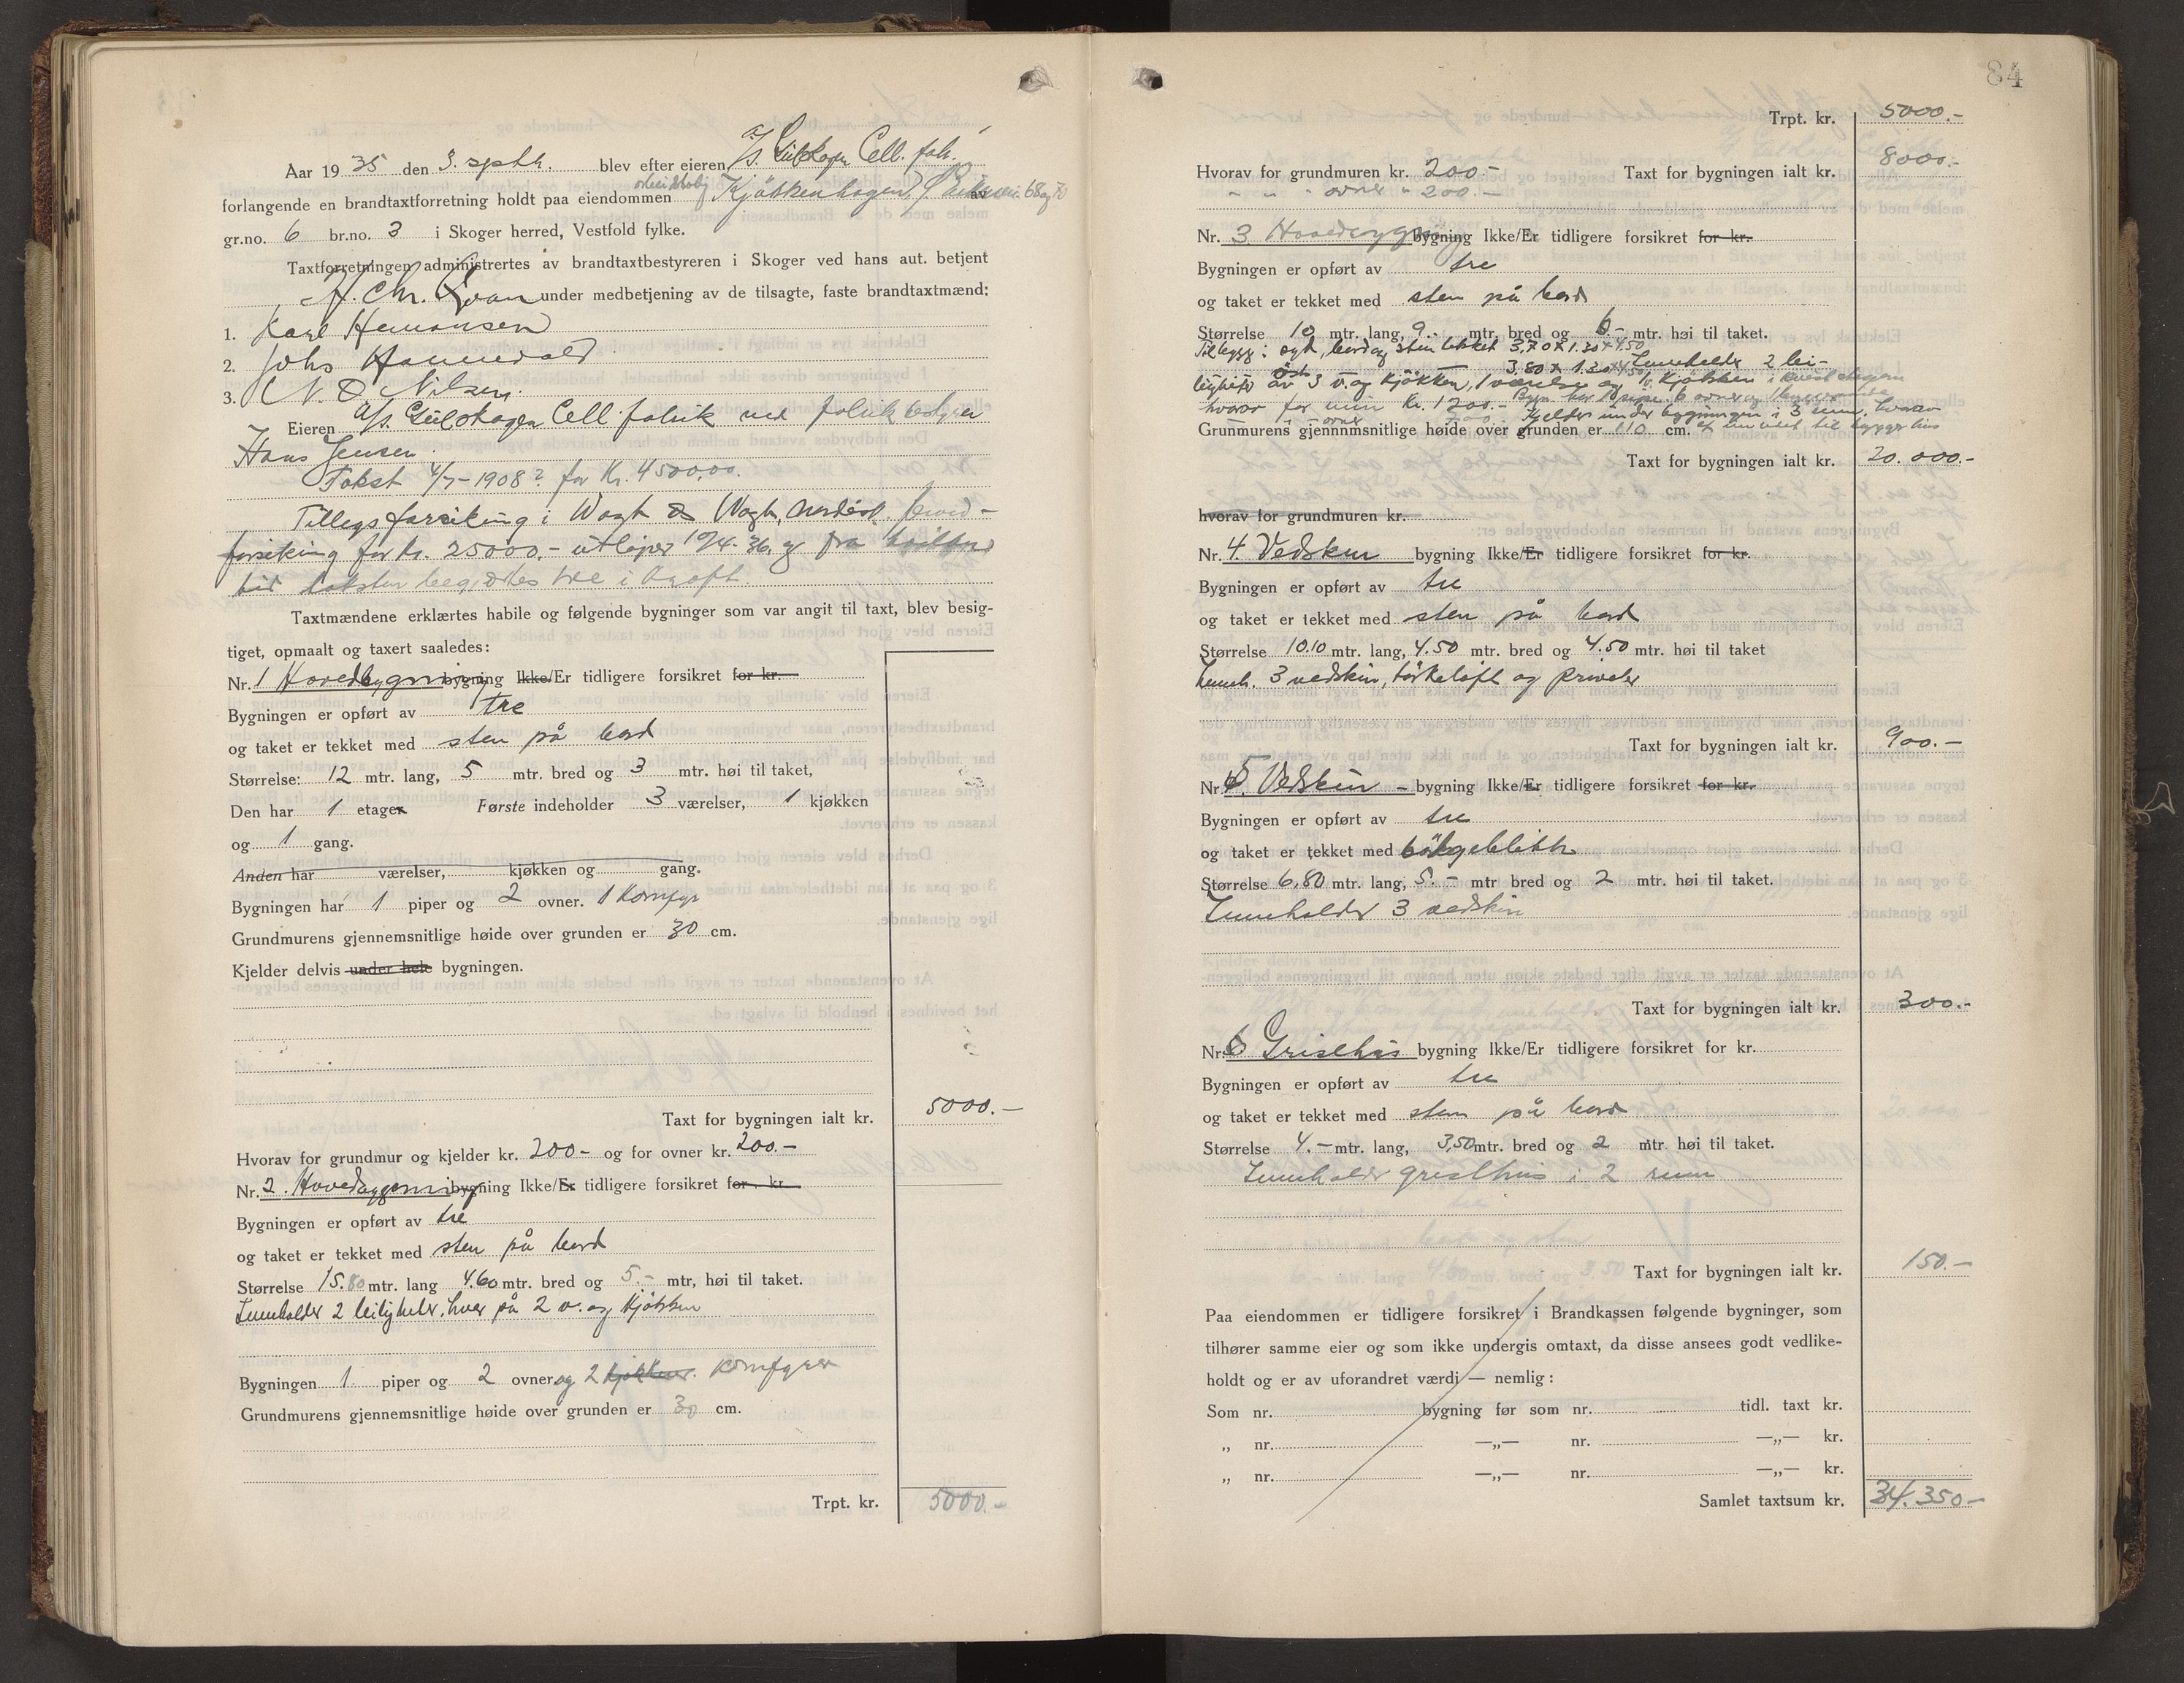 Aar 1935 den 3. septb. blev efter eieren A/S. Gulskogen Cell. fab.
forlangende en brandtaxtforretning holdt paa eiendommen arbeiderbolig Kjøkkenhagen, av
gr.no. 6 br.no. 3 i Skoger herred, Vestfold fylke.
Taxtforretningen administrertes av brandtaxtbestyreren i Skoger ved hans aut. betjent
H. Chr. under medbetjening av de tilsagte, faste brandtaxtmænd:
1. Karl Hermansen
2. Johs Hannevold
3. N. O. Nilsen.
Eieren A/S. Gulskogen Cell. fabrik ved fabrikbestyrer
Hans Jensen.
Takst 4/7-1908? for Kr. 45000,00.
Tillegsforsikring i Wagt & Wagt, brand-
forsikring for Kr. 25000.- utløper 10/4-36. og fra
tid taksten begjæres tre i kraft.
Taxtmændene erklærtes habile og følgende bygninger som var angit til taxt, blev besig-
tiget, opmaalt og taxert saaledes:
Nr. 1 Hovedbygning bygning Ikke/Er tidligere forsikret for kr.
Bygningen er opført av tre
og taket er tekket med sten på bord
Størrelse: 12 mtr. lang, 5 mtr. bred og 3 mtr. høi til taket,
Den har 1 etager Første indeholder 3 værelser, 1 kjøkken
og 1 gang.
Anden har værelser, kjøkken og gang.
Bygningen har 1 piper og 2 ovner. 1 Komfyr
Grundmurens gjennemsnitlige høide over grunden er 30 cm.
Kjelder delvis under hele bygningen.
Taxt for bygningen ialt kr. 5000.-
Hvorav for grundmur og kjelder kr. 200- og for ovner kr. 200.-
Nr. 2. Hovedbygning bygning Ikke/Er tidligere forsikret for kr.
Bygningen er opført av tre
og taket er tekket med sten på bord
Størrelse 15.80 mtr. lang 4.60 mtr. bred og 5.- mtr, høi til taket.
Inneholder 2 leiligheter, hver på 2 v. og kjøkken
Bygningen 1 piper og 2 ovner og 2 kjøkken. komfyrer
Grundmurens gjennemsnitlige høide over grunden er 30 cm.
Trpt. kr. 5000.-
84
Trpt. kr. 5000.-
Hvorav for grundmuren kr. 200.- Taxt for bygningen ialt kr. 8000.-
" " " ovner " 200.-
Nr. 3 Hovedbygning bygning Ikke/Er tidligere forsikret for kr.
Bygningen er opført av tre
og taket er tekket med sten på bord
Størrelse 12 mtr. lang, 9.- mtr. bred og 6.- mtr. høi til taket.
Tilbygg: bord og sten tekket 3,70 x 1.30 x 4.50
3,80 x 1.30 x 4.50 Inneholder 2 lei-
ligheter av 3 v. og kjøkken, 1 værelse og 1 kjøkken i kvistetagen
hvorav for mur Kr. 1200.- Bygn. har 1 pipe. 6 ovner og
ovner Kjelder under bygningen i 3 rum, hvorav
Grunmurens gjennnmsnitlige høide over grunden er 110 cm. et innredet til bryggerhus
Taxt for bygningen ialt kr. 20.000.-
hvorav for grundmuren kr.
Nr. 4. Vedskur bygning Ikke/Er tidligere forsikret for kr.
Bygningen er opført av tre
og taket er tekket med sten på bord
Størrelse 10.10 mtr. lang, 4.50 mtr. bred og 4.50 mtr. høi til taket
Inneh. 3 vedskur, tørkeloft og priveter
Taxt for bygningen ialt kr. 900.-
Nr. 5. Vedskur - bygning Ikke/Er tidligere forsikret for kr.
Bygningen er opført av tre
og taket er tekket med bølgeblikk
Størrelse 6,80 mtr. lang, 5.- mtr bred og 2 mtr. høi til taket.
Inneholder 3 vedskur
Taxt for bygningen ialt kr. 300.-
Nr. 6 Grisehus bygning Ikke/Er tidligere forsikret for kr.
Bygningen er opført av tre
og taket er tekket med sten på bord
Størrelse 4.- mtr. lang, 3,50 mtr. bred og 2 mtr. høi til taket.
Inneholder grisehus i 2 rum
Taxt for bygningen ialt kr. 150.-
Paa eiendommen er tidligere forsikret i Brandkassen følgende bygninger, som
tilhører samme eier og som ikke undergis omtaxt, da disse ansees godt vedlike-
holdt og er av uforandret værdi — nemlig:
Som nr. bygning før som nr. tidl. taxt kr.
„ nr. —„— nr. —„— kr.
„ nr. —„— nr. —„— kr.
Samlet taxtsum kr. 34.350-